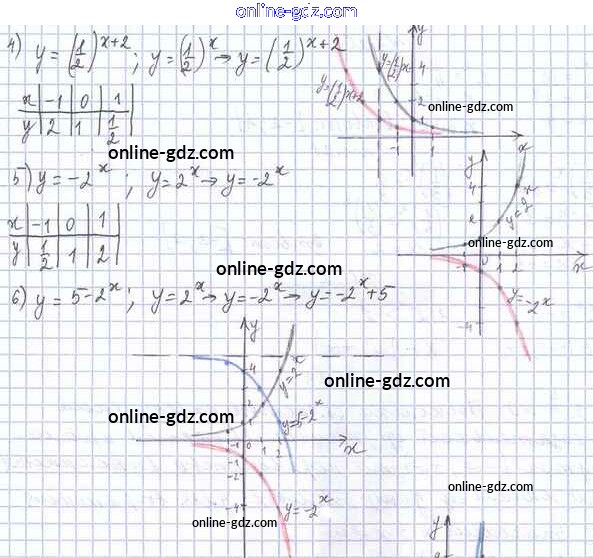 online-gdz.com
4) y = (1/2)^(x+2) ; y = (1/2)^x → y = (1/2)^(x+2)
x | -1 | 0 | 1 |
y | 2 | 1 | 1/2 |
y
y=(1/2)^x
y=(1/2)^(x+2)
4
2
1
-1 1
x
online-gdz.com
online-gdz.com
5) y = -2^x ; y = 2^x → y = -2^x
x | -1 | 0 | 1 |
y | 1/2 | 1 | 2 |
y
4
2
y=2^x
online-gdz.com
-1 0 1 2
x
y=-2^x
-4
online-gdz.com
6) y = 5-2^x ; y = 2^x → y = -2^x → y = -2^x + 5
y
4
y=2^x
2
1
online-gdz.com
online-gdz.com
y=5-2^x
-1 0 1 2
x
-1
-2
-4
y=-2^x
online-gdz.com
online-gdz.com
y